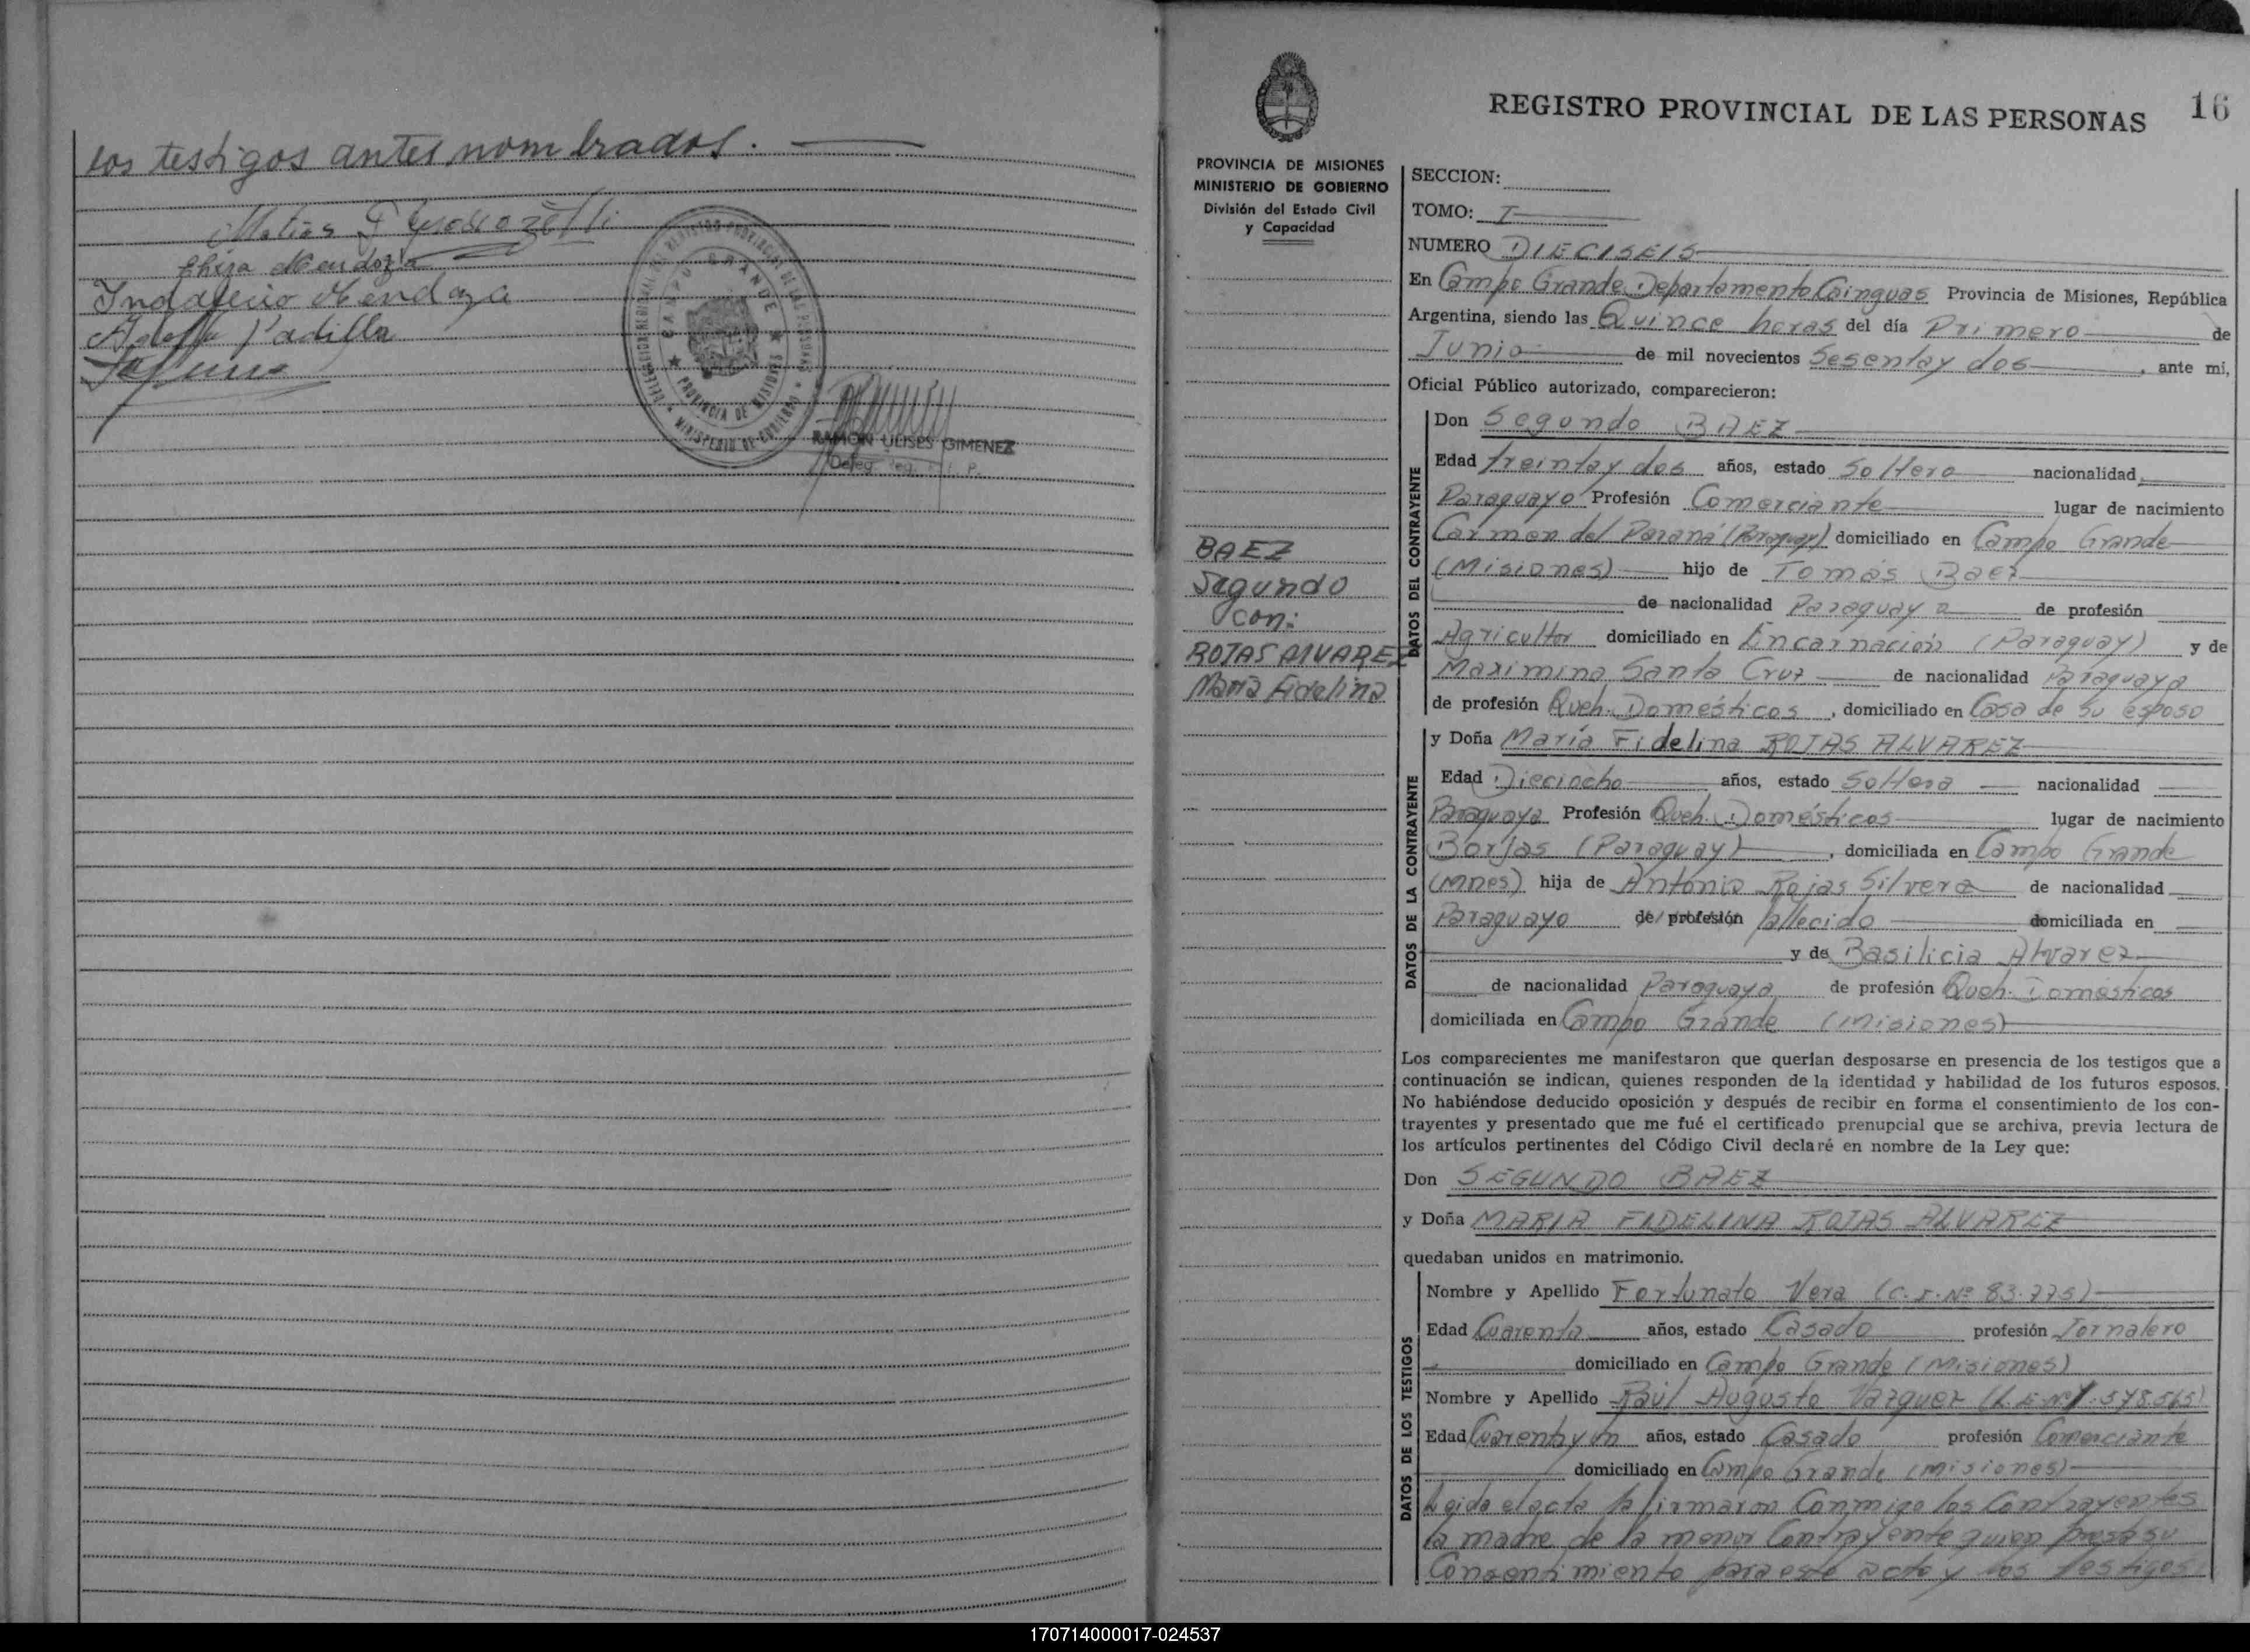 los testigos antes nombrados.
Matias
Mendoza
Indalecio Mendoza
Adolfo Padilla
DELEGACION REGIONAL DEL REGISTRO PROVINCIAL DE LAS PERSONAS
MINISTERIO DE GOBIERNO
CAMPO GRANDE
PROVINCIA DE MISIONES
RAMON ULISES GIMENEZ
Deleg. Reg.
16
REGISTRO PROVINCIAL DE LAS PERSONAS
PROVINCIA DE MISIONES
MINISTERIO DE GOBIERNO
División del Estado Civil
y Capacidad
BAEZ
Segundo
con:
ROJAS ALVAREZ
María Fidelina
SECCION:
TOMO: I
NUMERO DIECISEIS
En Campo Grande Departamento Cainguas Provincia de Misiones, República
Argentina, siendo las Quince horas del día Primero de
Junio de mil novecientos Sesenta y dos, ante mi,
Oficial Público autorizado, comparecieron:
DATOS DEL CONTRAYENTE
Don Segundo BAEZ
Edad treinta y dos años, estado Soltero nacionalidad
Paraguayo Profesión Comerciante lugar de nacimiento
Carmen del Paraná (Paraguay) domiciliado en Campo Grande
(Misiones) hijo de Tomás Baez
de nacionalidad Paraguaya de profesión
Agricultor domiciliado en Encarnación (Paraguay) y de
Maximina Santa Cruz de nacionalidad Paraguaya
de profesión Queh. Domésticos, domiciliado en Casa de su esposo
DATOS DE LA CONTRAYENTE
y Doña María Fidelina ROJAS ALVAREZ
Edad Dieciocho años, estado Soltera nacionalidad
Paraguaya Profesión Queh. Domésticos lugar de nacimiento
Borjas (Paraguay), domiciliada en Campo Grande
(Mnes) hija de Antonio Rojas Silvera de nacionalidad
Paraguayo de profesión fallecido domiciliada en
y de Basilicia Alvarez
de nacionalidad Paraguaya de profesión Queh. Domésticos
domiciliada en Campo Grande (Misiones)
Los comparecientes me manifestaron que querían desposarse en presencia de los testigos que a
continuación se indican, quienes responden de la identidad y habilidad de los futuros esposos.
No habiéndose deducido oposición y después de recibir en forma el consentimiento de los con-
trayentes y presentado que me fué el certificado prenupcial que se archiva, previa lectura de
los artículos pertinentes del Código Civil declaré en nombre de la Ley que:
Don SEGUNDO BAEZ
y Doña MARIA FIDELINA ROJAS ALVAREZ
quedaban unidos en matrimonio.
DATOS DE LOS TESTIGOS
Nombre y Apellido Fortunato Vera (C.I.Nº 83.775)
Edad Cuarenta años, estado Casado profesión Jornalero
domiciliado en Campo Grande (Misiones)
Nombre y Apellido Raúl Augusto Vazquez (L.E.Nº 1.578.565)
Edad Cuarenta y un años, estado Casado profesión Comerciante
domiciliado en Campo Grande (Misiones)
Leida el acta la firmaron Conmigo los Contrayentes
la madre de la menor Contrayente quien presta su
Consentimiento para este acto y los testigos
170714000017-024537